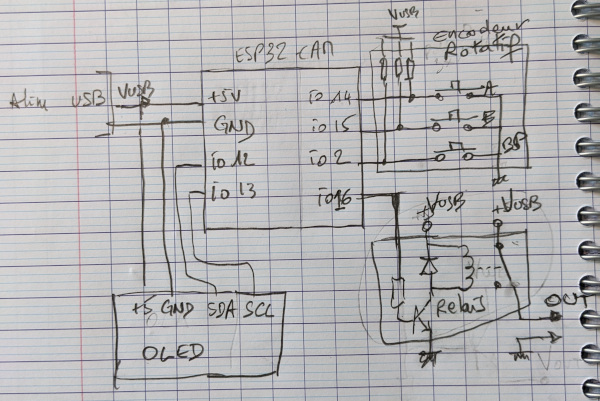 VUSB
Encodeur
Rotatif
ESP32 CAM
Alim USB
VUSB
+5V
io 14
A
GND
io 15
B
io 12
io 2
BP
io 13
io16
+VUSB
+VUSB
Relais
OUT
+5 GND SDA SCL
OLED